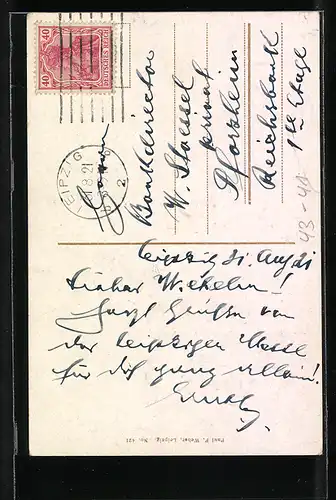 40 DEUTSCHES REICH 40
LEIPZIG
8.21
2
Herrn
Bankdirector
W. Stoessel
privat
Pforzheim
Reichsbank
1te Etage
43-41
Leipzig 31. Aug 21
Lieber Wilhelm!
Grüßen von
der Leipziger Messe
für dich ganz allein!
Paul F. Weber, Leipzig, No. 421